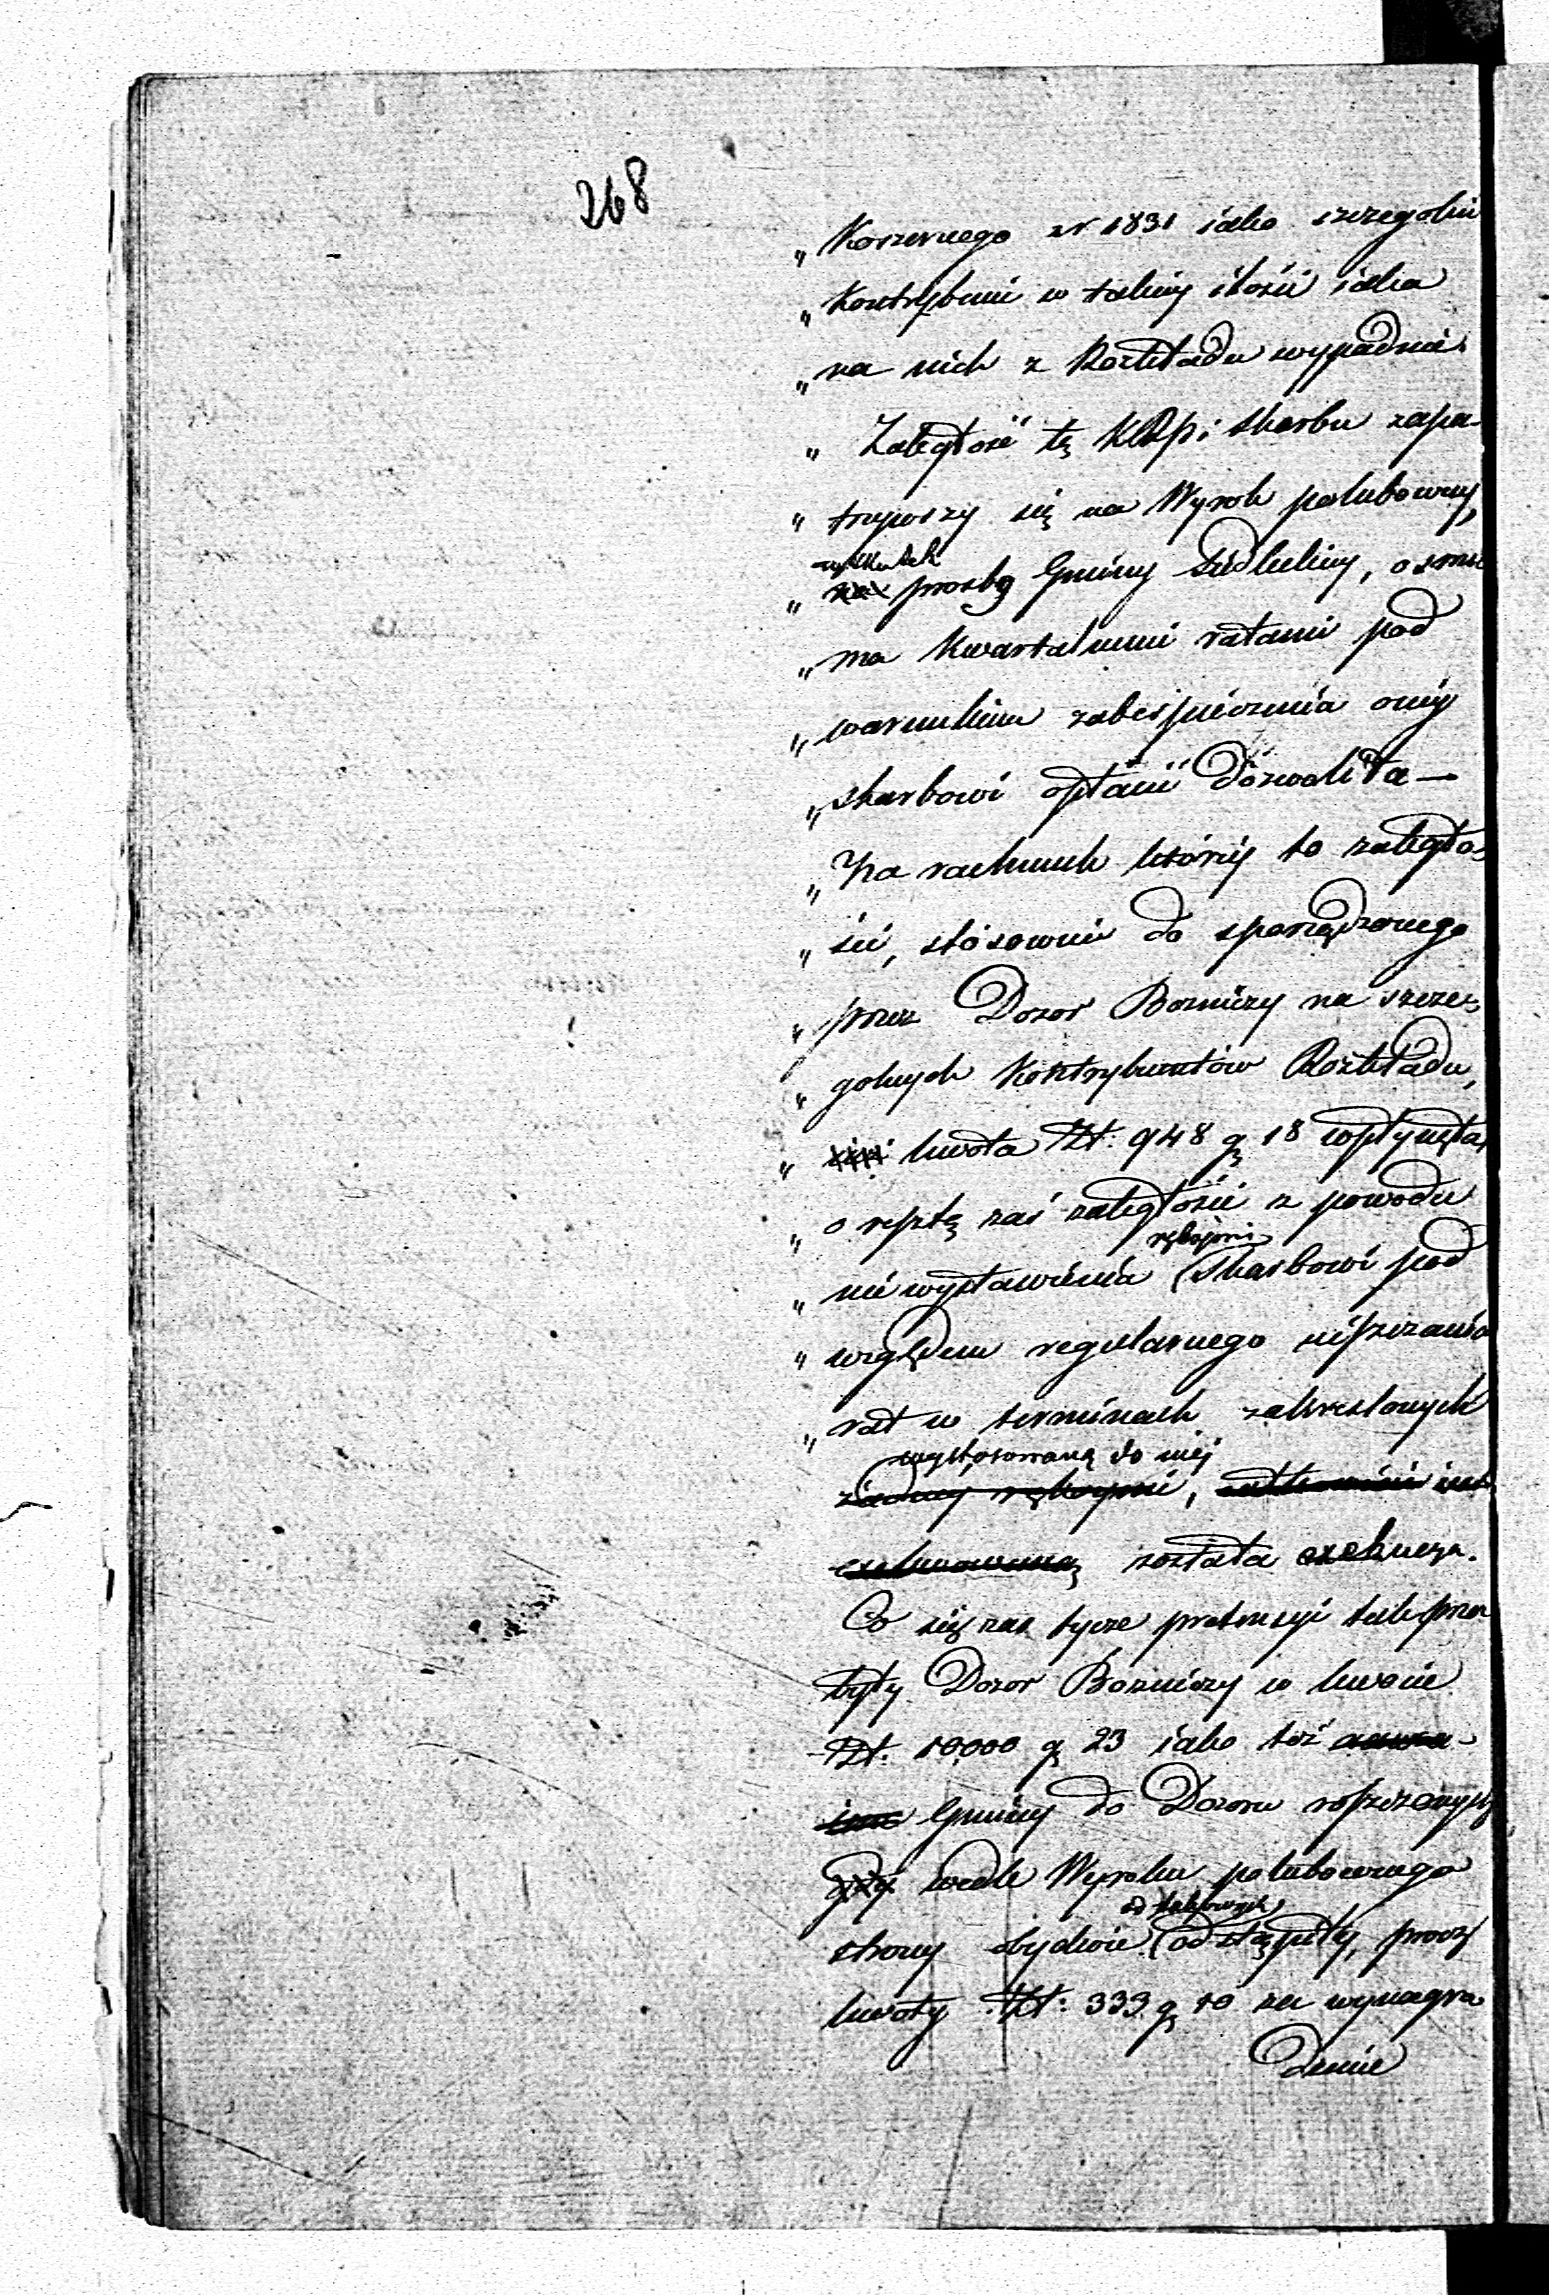 268
„ Koszernego z r 1831 iako szczegolni
„ Kontrybuenci w takiey ilości iaka
„ na nich z Rozkładu wypadnie
„ Zaległość tę KRP i Skarbu zapa-
„ trzywszy się na Wyrok polubowny,
w skutek
„ na prosbę Gminy Siedleckiey, osmio
„ ma Kwartalnemi ratami pod
„ warunkiem zabezpieczenia oney
„ Skarbowi opłacić dozwoliła —
„ Na rachunek którey to zaległo-
„ ści, stósownie do sporządzonego
„ przez Dozor Bozniczy na szcze-
„ golnych Kontrybuentów Rozkładu,
„ kwota Złt: 948 g 18 wpłynęła,
„ o resztę zaś zaległości z powodu
rękojmi
„ nie wystawienia Skarbowi pod
„ względem regularnego uiszczania
„ rat w terminach zakreslonych
wystosowaną do niej
żadney rękoymi,
exekwowaną została exekucya.
Co się zas tycze pretensyi tak przez
były Dozor Bozniczy w kwocie
Złt. 10000 g 23 iako też
Gminy do Dozoru roszczonych
wedle Wyroku polubownego
strony obydwie odstąpiły, procz
kwoty Złt: 333 g 10 za wynagro
dzenie